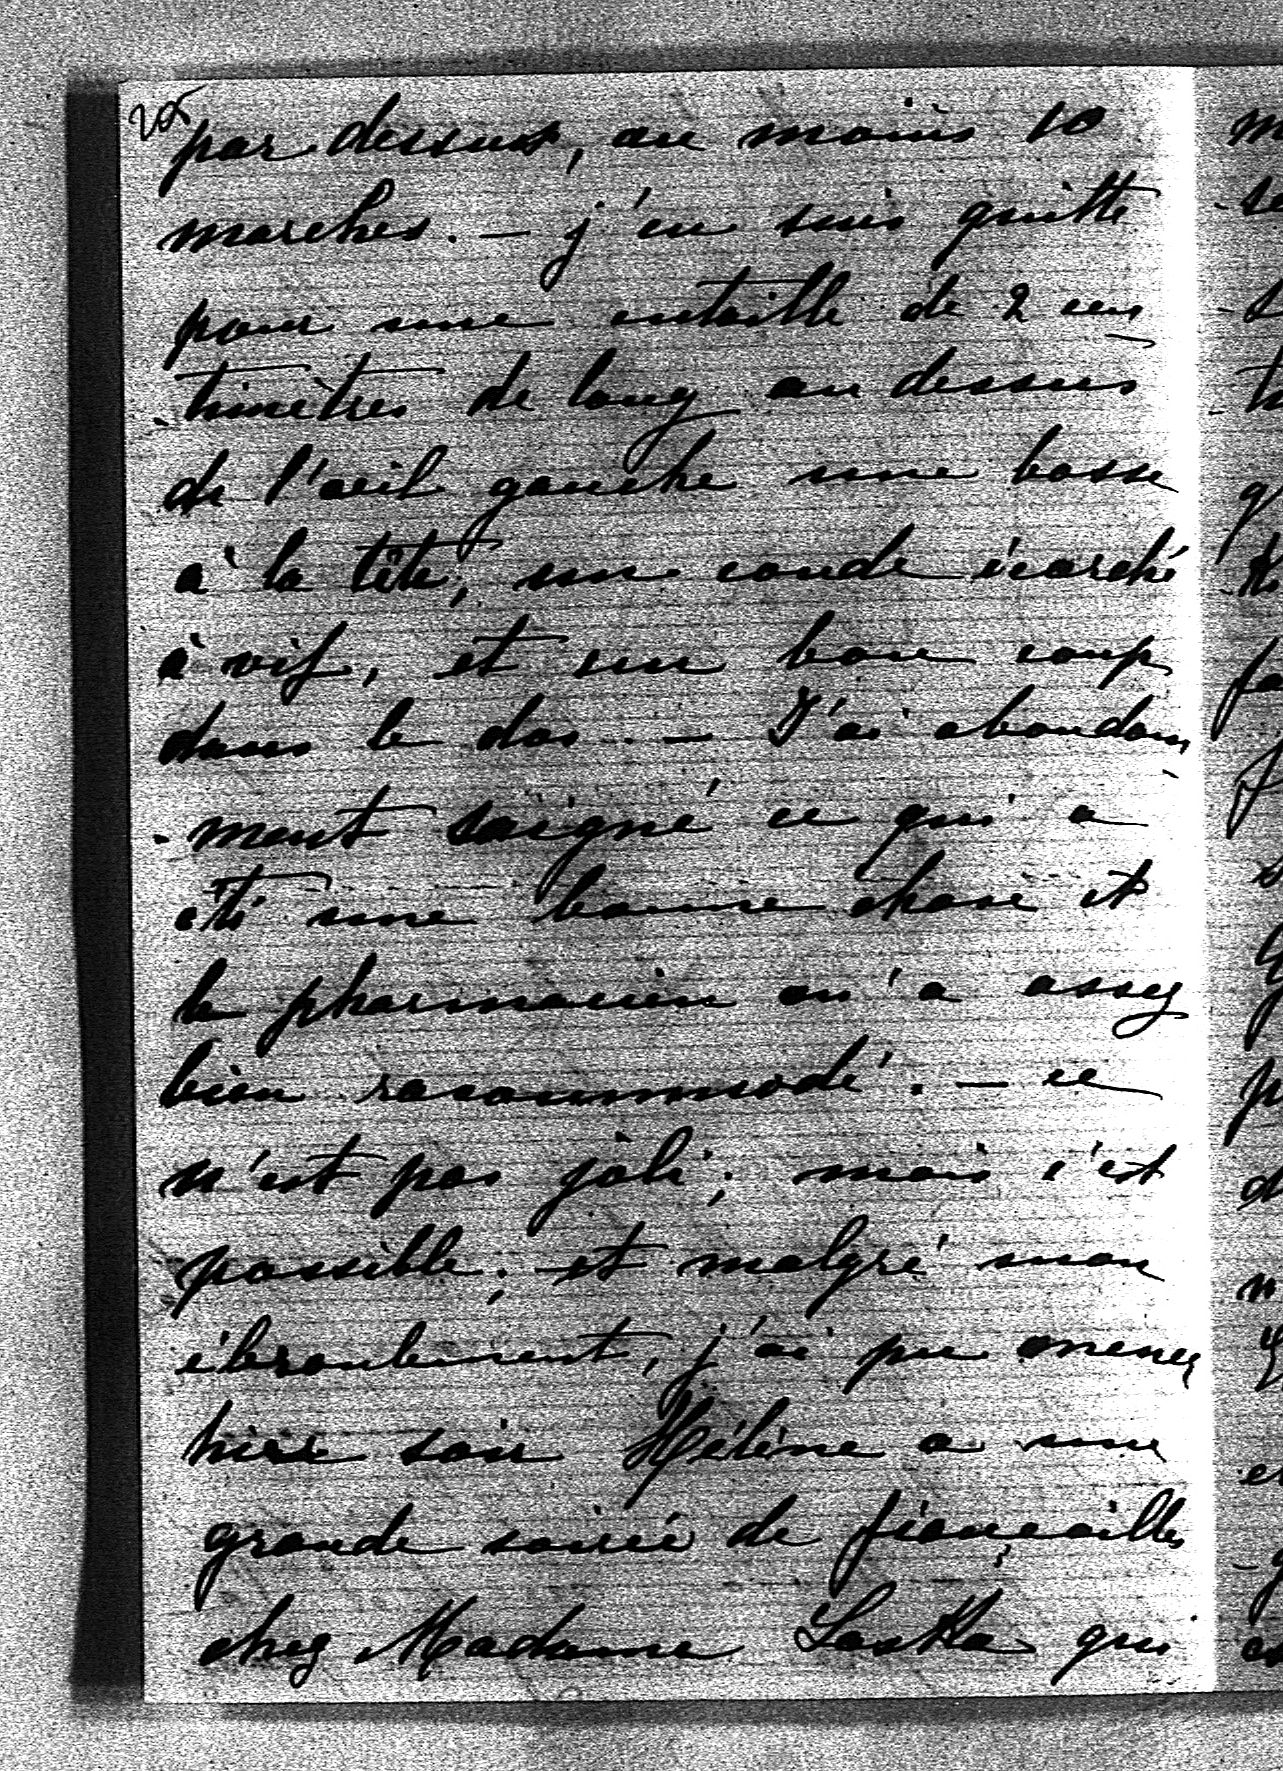 par dessus, au moins 10
marches. – j'en suis quitte
pour une entaille de 2 cen
-timètres de long au dessus
de l'œil gauche une bosse
à la tête, un coude écorché
à vif, et un bon coup
dans le dos. – J'ai abondam
-ment saigné ce qui a
été une bonne chose et
le pharmacien m'a assez
bien raccommodé. – ce
n'est pas joli; mais c'est
possible; et malgré mon
ébranlement, j'ai pu mener
hier soir Hélène a une
grande soirée de fiançailles
chez Madame qui